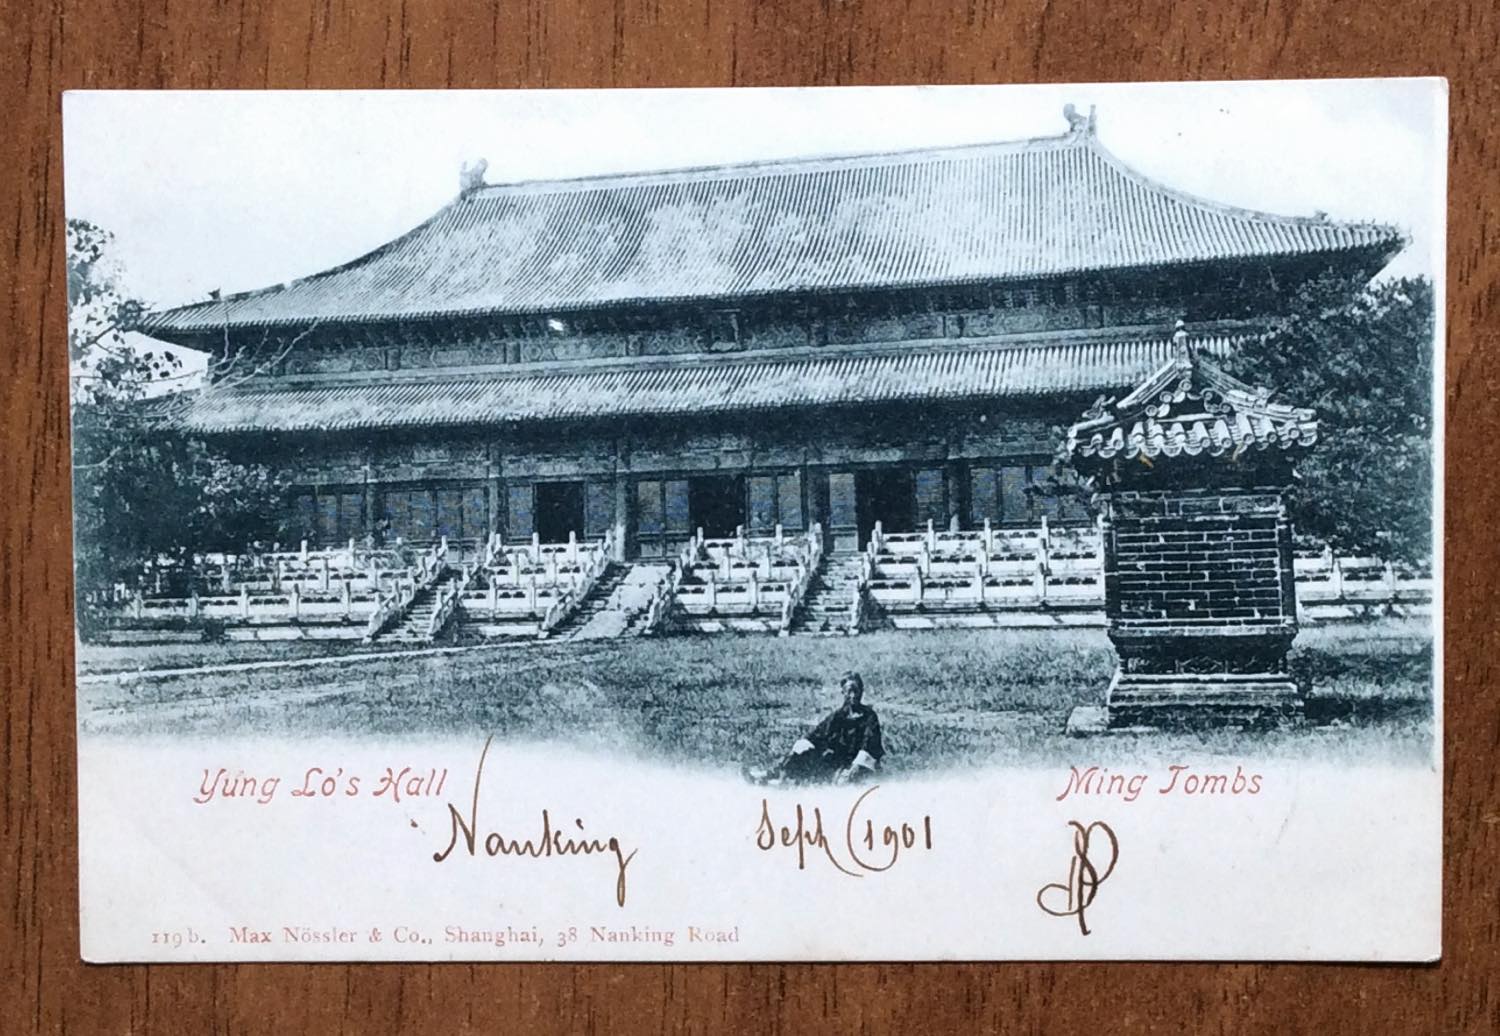 Yung Lo's Hall
Ming Tombs
Nanking Sept (1901
119b. Max Nössler & Co., Shanghai, 38 Nanking Road